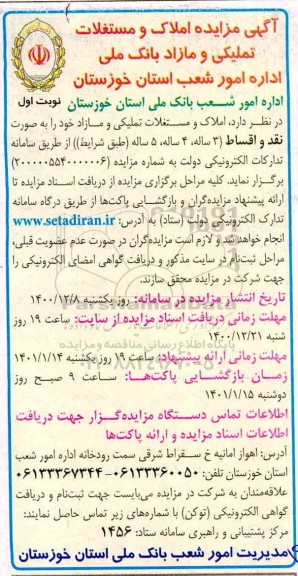 آگهی مزایده املاک و مستغلات
تملیکی و مازاد بانک ملی
اداره امور شعب استان خوزستان
اداره امور شـعب بانک ملی استان خوزستان
نوبت اول
در نظـر دارد، املاک و مسـتغلات تملیکی و مـازاد خود را به صورت
نقد و اقساط (۳ ساله، ۴ ساله، ۵ ساله (طبق شرایط)) از طریق سامانه
تدارکات الکترونیکی دولت به شماره مزایده (۲۰۰۰۰۰۵۵۴۰۰۰۰۰۶)
برگزار نماید. کلیه مراحل برگزاری مزایده از دریافت اسـناد مزایده تا
ارائه پیشنهاد مزایده‌گران و بازگشـایی پاکت‌ها از طریق درگاه سامانه
تدارک الکترونیکی دولت (ستاد) به آدرس: www.setadiran.ir
انجام خواهد شد و لازم است مزایده‌گران در صورت عدم عضویت قبلی،
مراحل ثبت‌نام در سایت مذکور و دریافت گواهی امضای الکترونیکی را
جهت شرکت در مزایده محقق سازند.
تاریخ انتشار مزایده در سامانه: روز یکشنبه ۱۴۰۰/۱۲/۸
مهلت زمانی دریافت اسناد مزایده از سایت: ساعت ۱۹ روز
شنبه ۱۴۰۰/۱۲/۲۱
مهلت زمانی ارائه پیشنهاد: ساعت ۱۹ روز یکشنبه ۱۴۰۱/۱/۱۴
زمـان بازگشـایی پاکت‌هـا: ساعت ۹ صبح روز
دوشنبه ۱۴۰۱/۱/۱۵
اطلاعات تماس دسـتگاه مزایده‌گـزار جهت دریافت
اطلاعات اسناد مزایده و ارائه پاکت‌ها
آدرس: اهواز امانیه خ سـقراط شرقی سمت رودخانه اداره امور شعب
استان خوزستان تلفن: ۰۶۱۳۳۳۶۰۰۵۰-۰۶۱۳۳۳۶۷۳۴۴
علاقه‌مندان به شرکت در مزایده می‌بایست جهت ثبت‌نام و دریافت
گواهی الکترونیکی (توکن) با شماره‌های زیر تماس حاصل نمایند:
مرکز پشتیبانی و راهبری سامانه ستاد: ۱۴۵۶
مدیریت امور شعب بانک ملی استان خوزستان